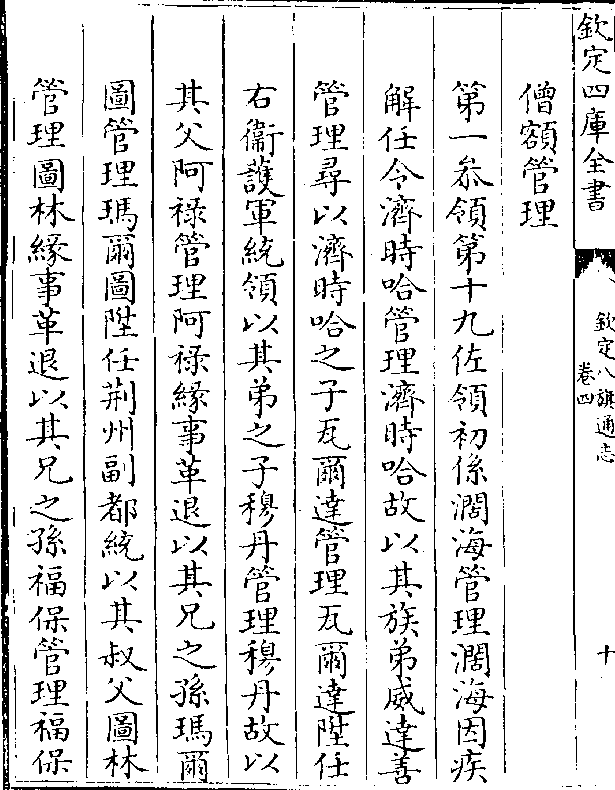 欽定四庫全書
欽定八旗通志
卷四
十
僧額管理
第一叅領第十九佐領初係濶海管理濶海因疾
解任令濟時哈管理濟時哈故以其族弟威達善
管理尋以濟時哈之子瓦爾達管理瓦爾達陞任
右衞護軍統領以其弟之子穆丹管理穆丹故以
其父阿祿管理阿祿緣事革退以其兄之孫瑪爾
圖管理瑪爾圖陞任荆州副都統以其叔父圖林
管理圖林緣事革退以其兄之孫福保管理福保